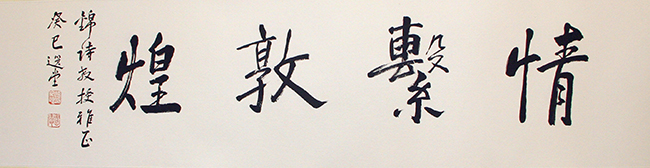 情繫敦煌
錦诗教授雅正
癸巳選堂